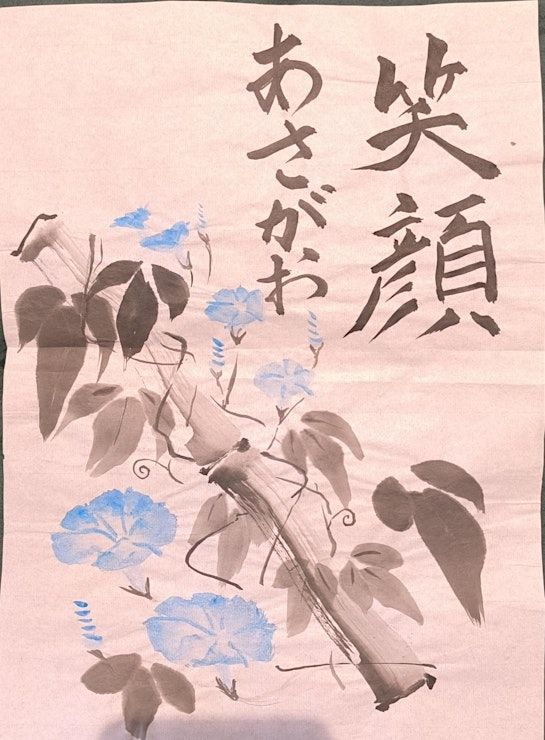 笑顔
あさがお